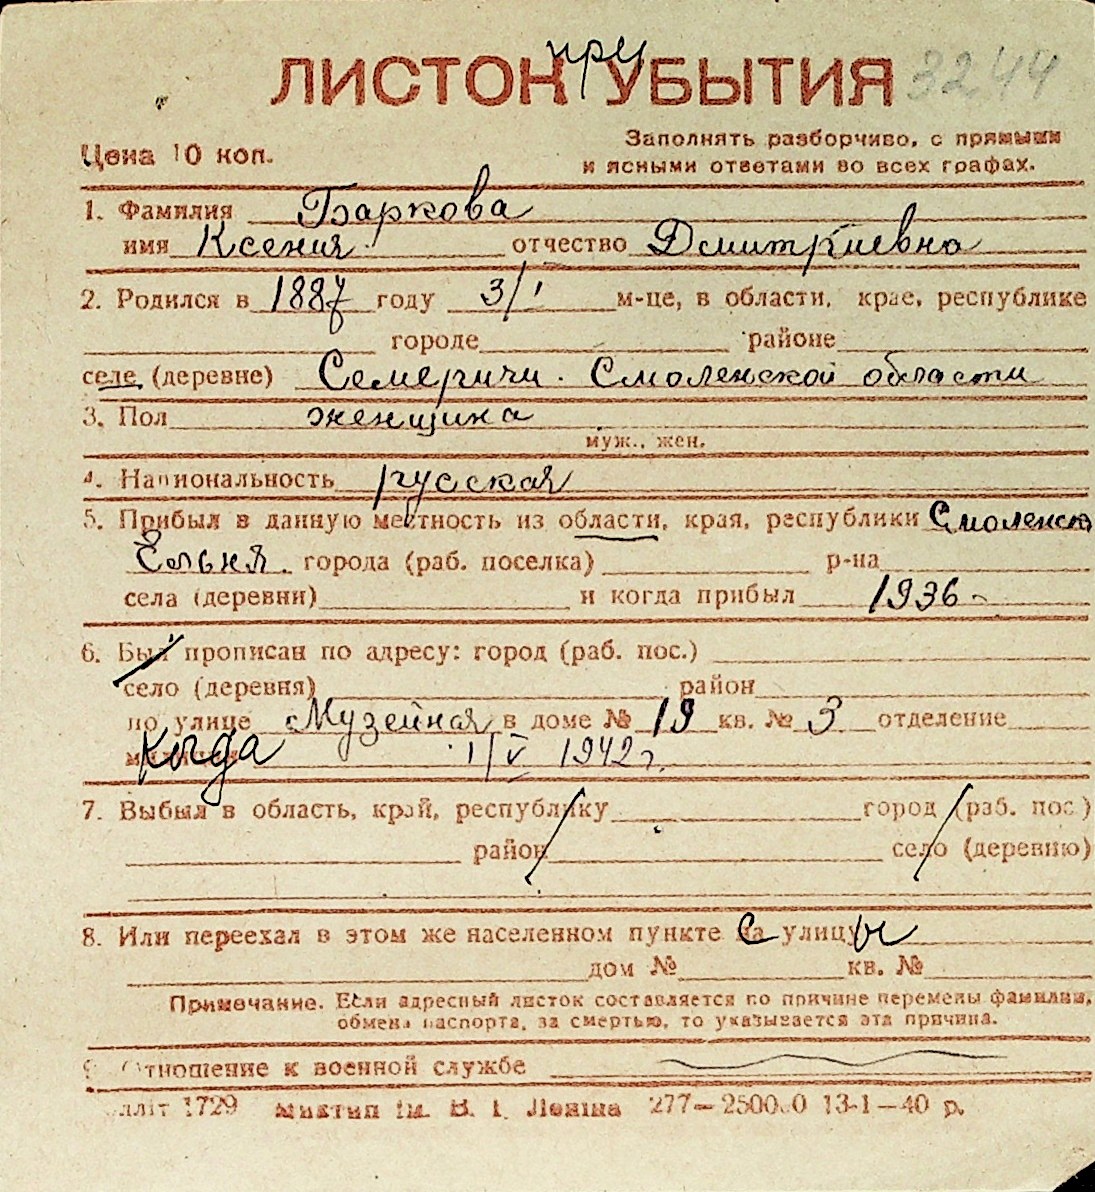 ЛИСТОК при УБЫТИЯ 3244
Цена 10 коп.
Заполнять разборчиво, с прямыми
и ясными ответами во всех графах.
1. Фамилия Баркова
имя Ксения отчество Дмитриевна
2. Родился в 1887 году 3/I м-це, в области, крае, республике
городе районе
селе (деревне) Семеричи. Смоленской области
3. Пол женщина
муж., жен.
4. Национальность русская
5. Прибыл в данную местность из области, края, республики Смоленск
Ельня. города (раб. поселка) р-на
села (деревни) и когда прибыл 1936
6. Был прописан по адресу: город (раб. пос.)
село (деревня) район
по улице Музейная в доме № 19 кв. № 3 отделение
милиции Когда 1/V 1942 г.
7. Выбыл в область, край, республику город (раб. пос.)
район село (деревню)
8. Или переехал в этом же населенном пункте с улицы
дом № кв. №
Примечание. Если адресный листок составляется по причине перемены фамилии,
обмена паспорта, за смертью, то указывается эта причина.
9. Отношение к военной службе
1729 ім. В. І. Леніна 277—250000 13-1—40 р.